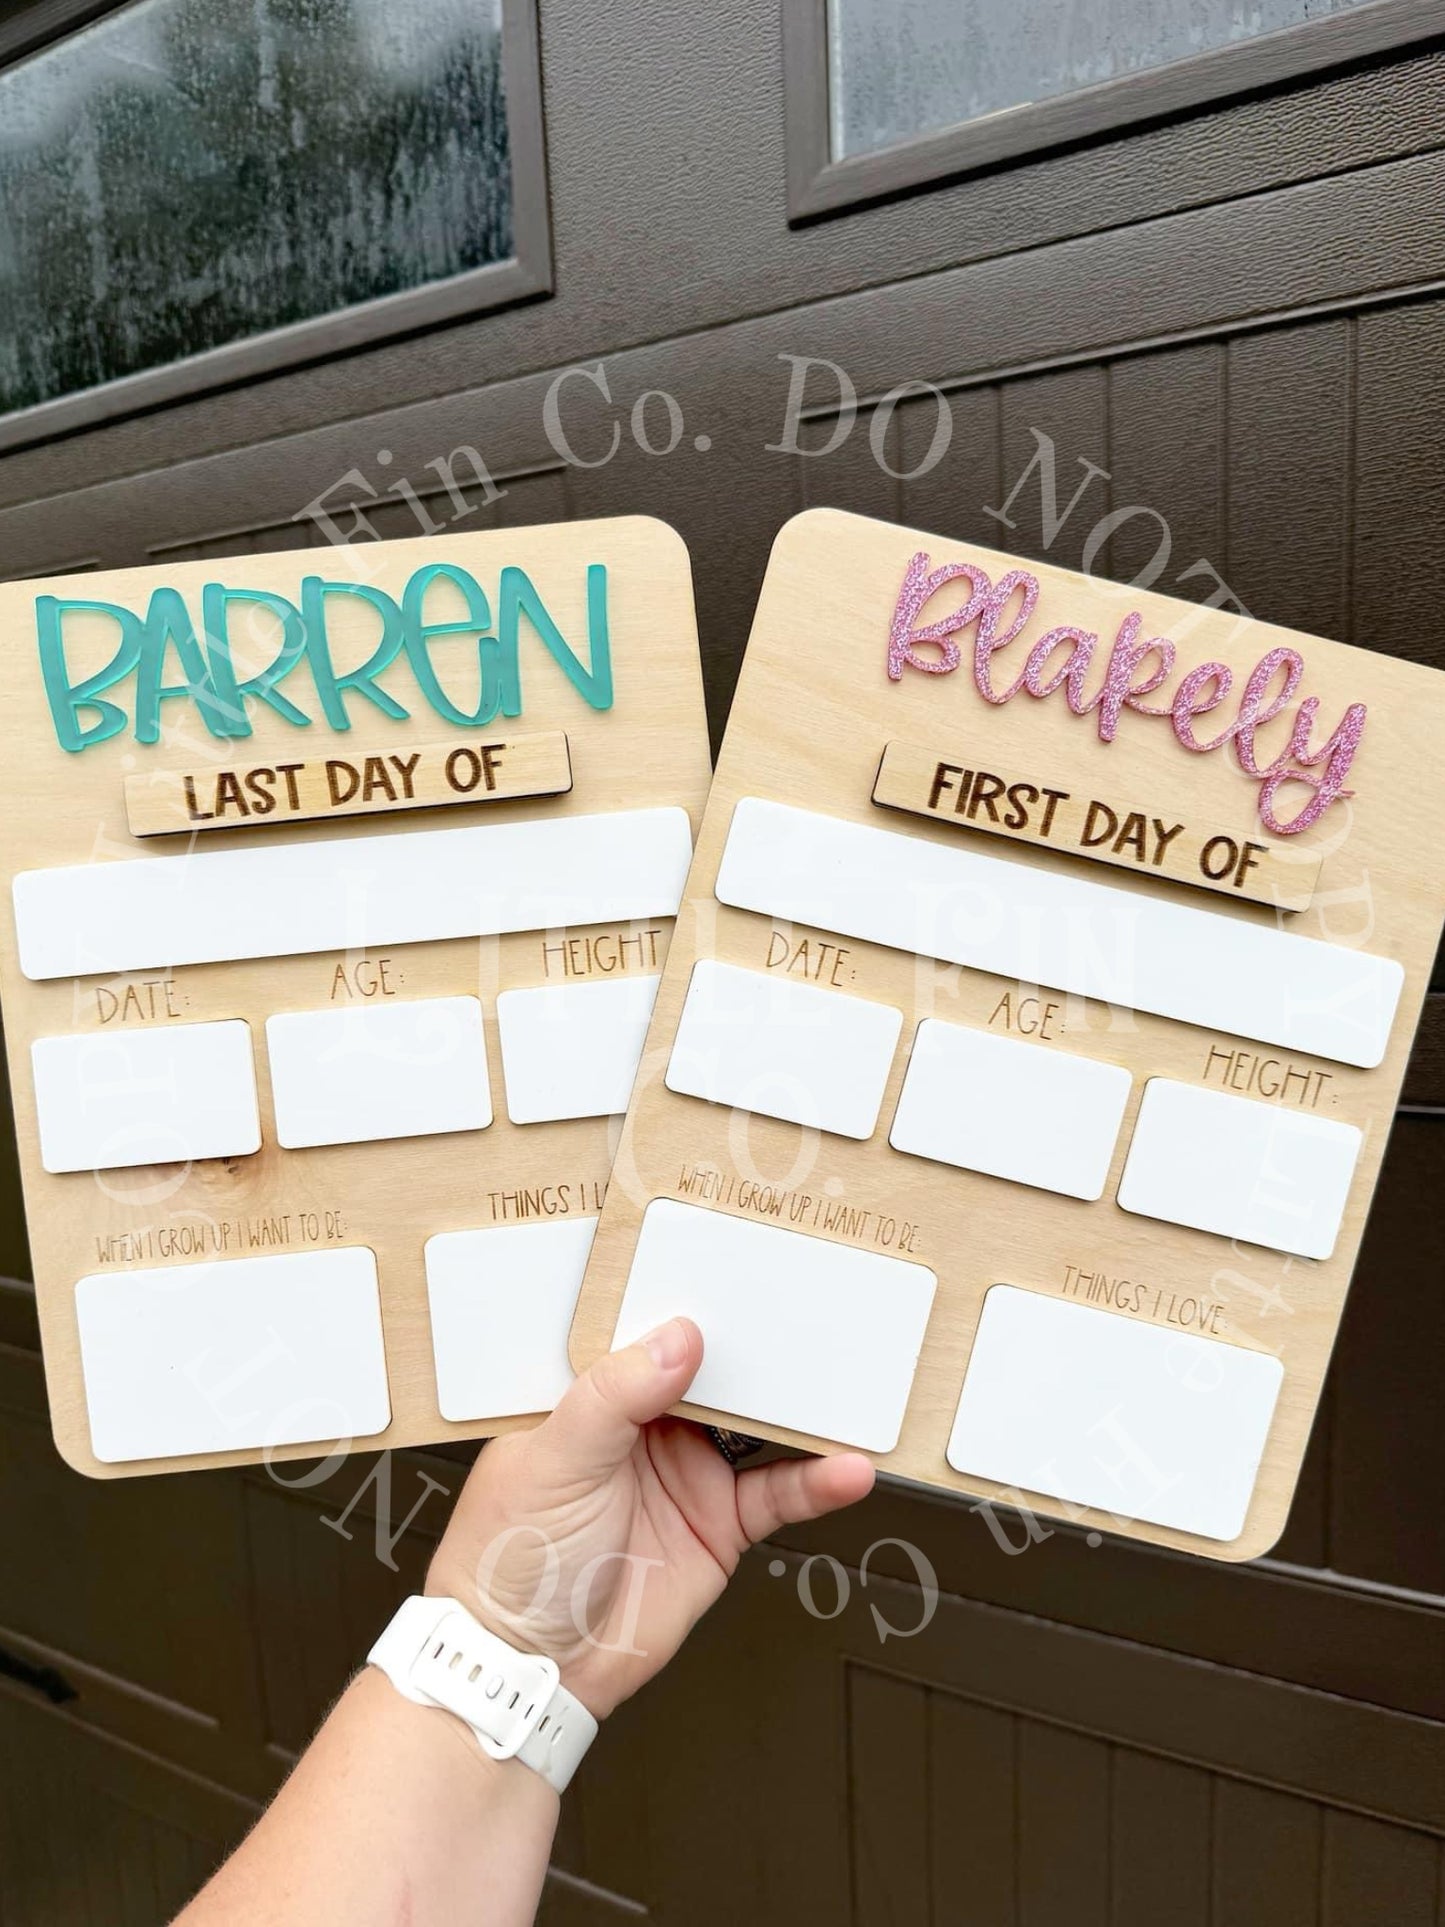 BARREN
LAST DAY OF
DATE:
AGE:
HEIGHT
WHEN I GROW UP I WANT TO BE:
THINGS I LO
Blakely
FIRST DAY OF
DATE:
AGE:
HEIGHT:
WHEN I GROW UP I WANT TO BE:
THINGS I LOVE:
Little Fin Co. DO NOT COPY Little Fin Co. DO NOT COPY
LITTLE FIN
CO.